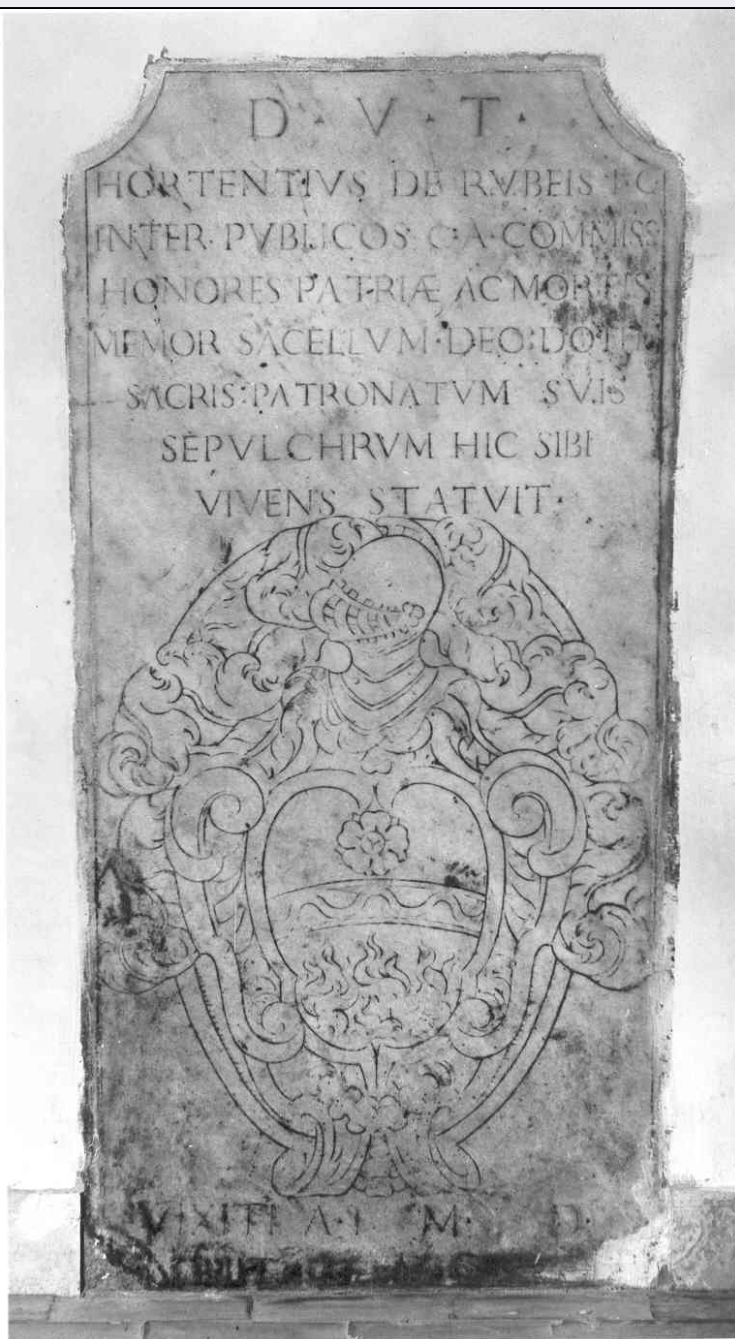 D · V · T ·
HORTENTIVS DE RVBEIS I·C
INTER· PVBLICOS C·A·COMMISS
HONORES PATRIÆ AC MORTIS
MEMOR SACELLVM·DEO:DOTEM
SACRIS:PATRONATVM SVIS
SEPVLCHRVM HIC SIBI
VIVENS STATVIT·
VIXIT A· M· D·